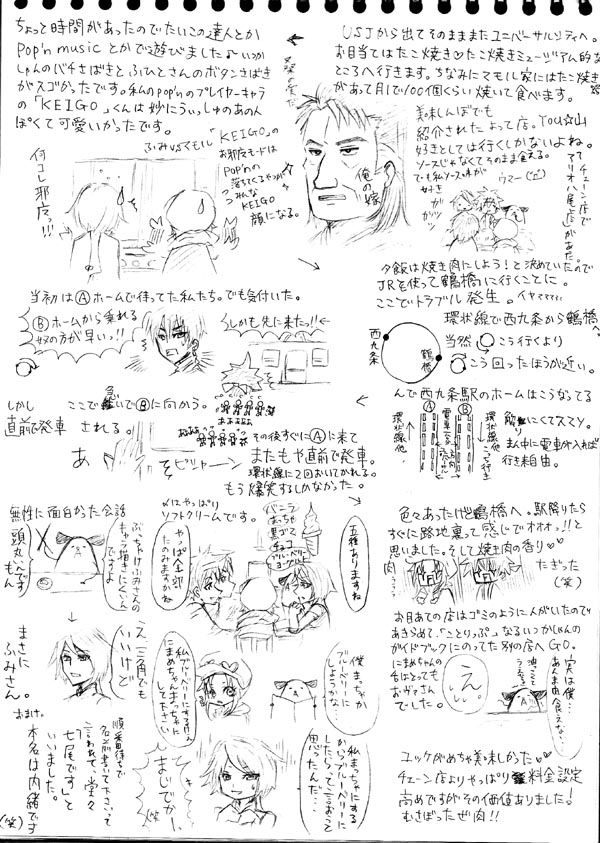 USJから出てそのまままたユニバーサルシティへ。
お目当てはたこ焼き♡たこ焼きミュージアム的な
ところへ行きます。ちなみにマモル家にはたこ焼き
があって月1で100個くらい焼いて食べます。
美味しんぼでも
紹介されたよって店。YOU☆山
好きとしては行くしかないよね。
ソースじゃなくてそのまま食える。
でも私ソース味が
好き
ウマー
ガツガツ
チェーン店で
アリオ八尾店があった。
夕飯は焼き肉にしよう!と決めていたので
JRを使って鶴橋に行くことに。
ここでトラブル発生。イヤマママ
環状線で西九条から鶴橋へ。
西九条
鶴橋
当然
こう行くより
こう回ったほうが近い。
んで西九条駅のホームはこうなってる
Ⓐ
Ⓑ
環状線他
電車
環状線他
解りにくくてスマソ。
まん中に電車が入れば
行き来自由。
色々あったけど鶴橋へ。駅降りたら
すぐに路地裏って感じでオオオっ!!と
思いました。そして焼き肉の香り♡
肉
たぎった
(笑)
お目あての店はゴミのように人がいたので
あきらめて、「ことりっぷ」なるいつかしゃんの
ガイドブックにのってた別の店へGO。
にまめちゃんの
分はとっても
おヴァさん
でした。
え。
実は僕…
あんま肉食えない…
ユッケがめちゃ美味しかった♡♡
チェーン店よりやっぱり料金設定
高めですがその価値ありました!
むさぼったぜ肉!!
ちょっと時間があったのでたいこの達人とか
Pop'n musicとかで遊びました♪いつか
しゃんのバチさばきとふひとさんのボタンさばき
がスゴかったです。私のpop'nのプレイヤーキャラ
の「KEIGO」くんは妙にういっしゅのあのん
ぽくて可愛いかったです。
ふみVSマモル
何コレ邪魔っ!!!
「KEIGO」の
お邪魔モードは
Pop'nの
落ちてくるやつが
みんな
KEIGO
顔になる。
俺の嫁
当初はⒶホームで待ってた私たち。でも気付いた。
Ⓑホームから乗れる
奴の方が早いっ!!
しかも先に来たっ!!
しかし
ここで急いでⒷに向かう。
直前で発車される。
あ
ピシャーン
その後すぐにⒶに来て
またもや直前で発車。
環状線に2回おいてかれる。
もう爆笑するしかなかった。
無性に面白かった会話
〆はやっぱり
ソフトクリームです。
バニラ
まっちゃ
黒ゴマ
チョコ
ブルーベリー
ヨーグルト
五種ありますね
やっぱ全部
たのみますかね
ぶっちゃけふみさんの
キャラ描きにくいん
ですよ
頭丸いんです
もん
え、三角でも
いいけど
まさに
ふみさん。
僕まっちゃか
ブルーベリーに
しようかな…
私ブルーベリーにするけん
こまめちゃんまっちゃに
して下さい
私まっちゃにする
からブルーベリーに
したらって言おうと
思ってたんだ…
まじでかー。
(笑)
おまけ。
順番待ちで
名前書いて下さいって
言われて、堂々
「七尾です」と
いいました。
本名は内緒です
(笑)